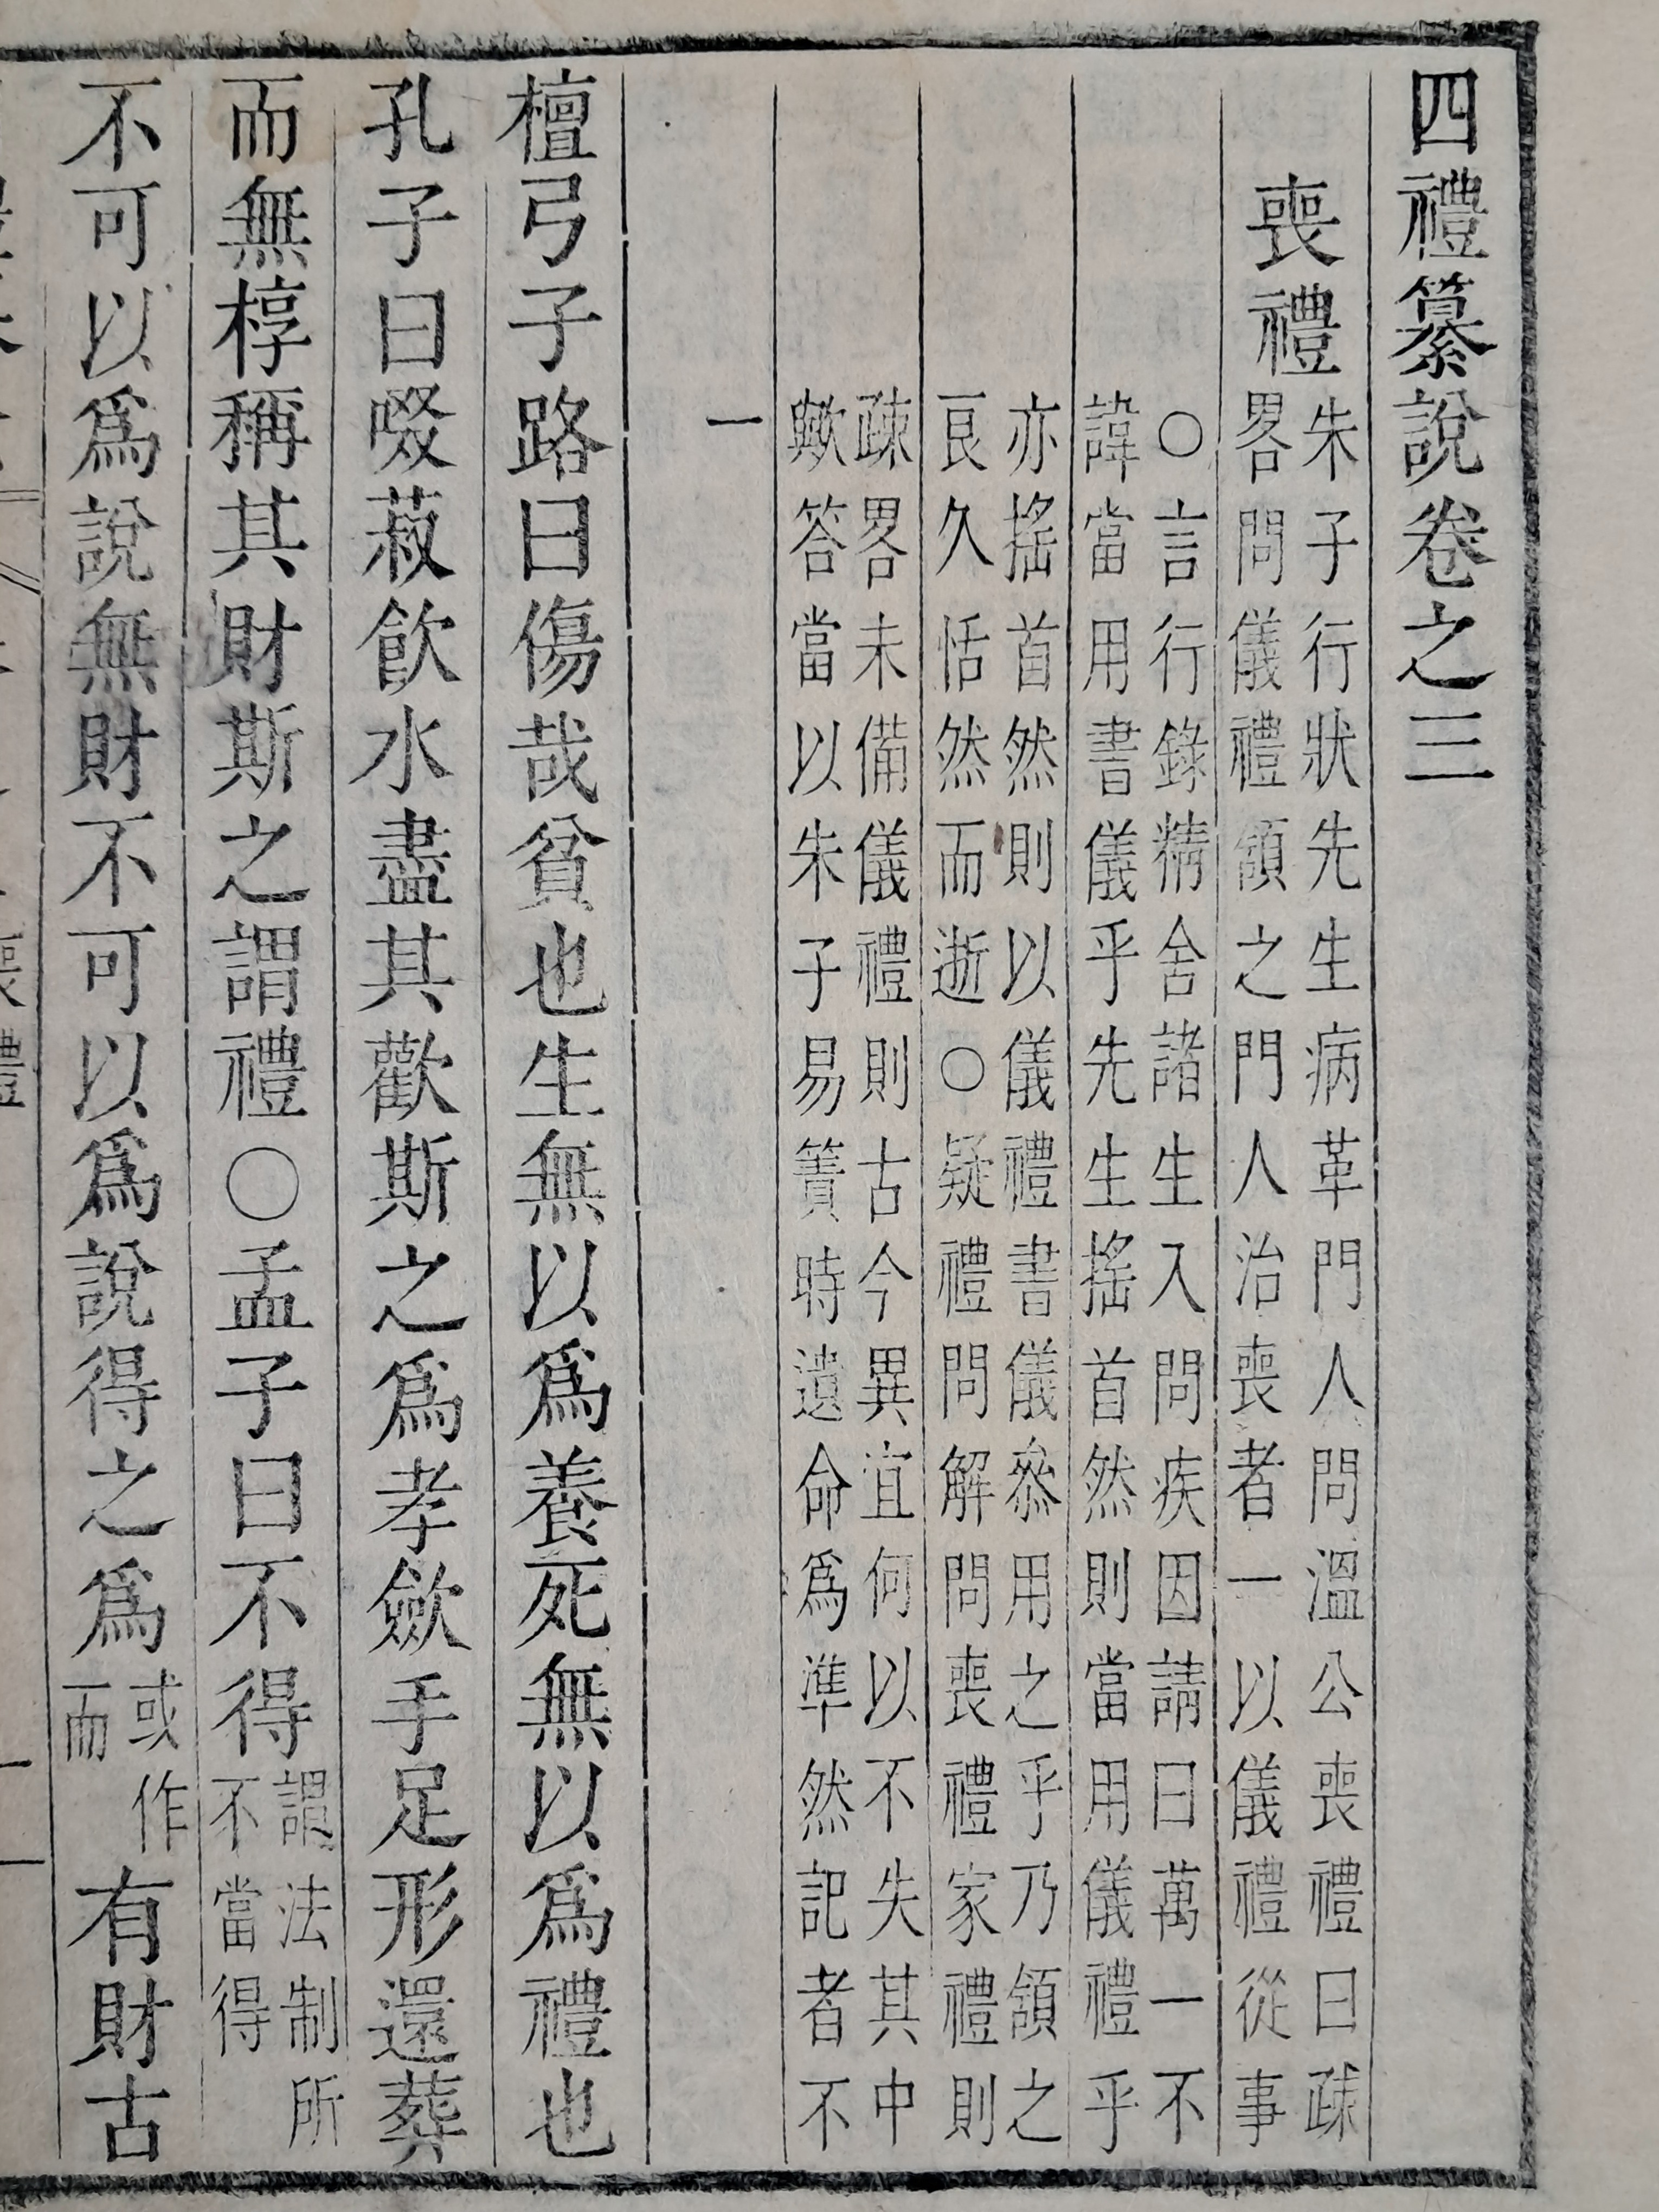 四禮纂說卷之三
喪禮
朱子行狀先生病革門人問溫公喪禮曰疎
畧問儀禮頷之門人治喪者一以儀禮從事
○言行錄精舍諸生入問疾因請曰萬一不
諱當用書儀乎先生搖首然則當用儀禮乎
亦搖首然則以儀禮書儀叅用之乎乃頷之
良久恬然而逝○疑禮問解問喪禮家禮則
疎畧未備儀禮則古今異宜何以不失其中
歟答當以朱子易簀時遺命爲準然記者不
一
檀弓子路曰傷哉貧也生無以爲養死無以爲禮也
孔子曰啜菽飮水盡其歡斯之爲孝斂手足形還葬
而無椁稱其財斯之謂禮○孟子曰不得
謂法制所
不當得
不可以爲說無財不可以爲說得之爲
或作
而
有財古